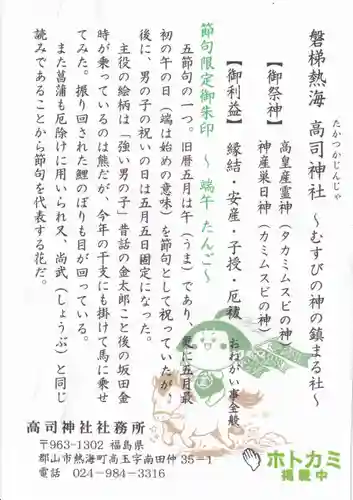 磐梯熱海 高司神社 ~むすびの神の鎮まる社~
たかつかじんじゃ
【御祭神】
高皇産霊神(タカミムスビの神)
神産巣日神(カミムスビの神)
【御利益】 縁結・安産・子授・厄祓 おねがい事全般
節句限定御朱印 ~ 端午 たんご~
五節句の一つ。旧暦五月は午(うま)であり、更に五月最
初の午の日(端は始めの意味)を節句として祝っていたが、
後に、男の子の祝いの日は五月五日固定になった。
主役の絵柄は「強い男の子」昔話の金太郎こと後の坂田金
時が乗っているのは熊だが、今年の干支にも掛けて馬に乗せ
てみた。振り回された鯉のぼりも目が回っている。
また菖蒲も厄除けに用いられ又、尚武(しょうぶ)と同じ
読みであることから節句を代表する花だ。
高司神社社務所
〒963-1302 福島県
郡山市熱海町高玉字南田仲35-1
電話 024-984-3316
ホトカミ
掲載中